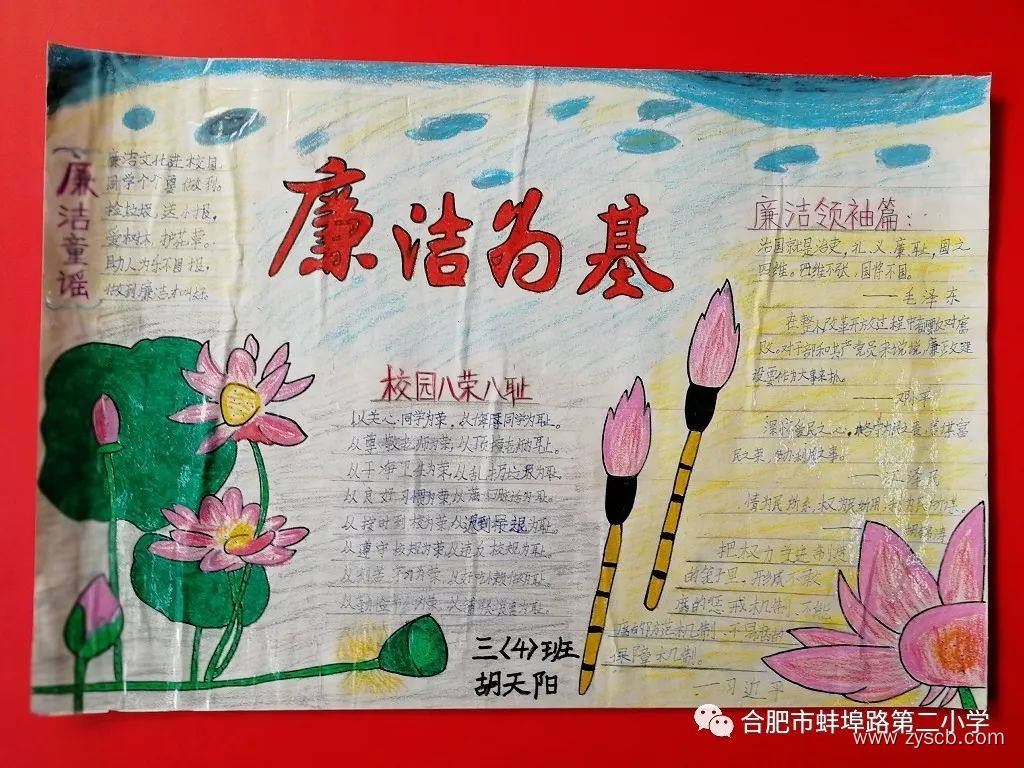 廉洁为基
廉洁童谣
廉洁文化进校园,
同学个个要做到。
捡垃圾,送小报,
爱树木,护花草。
助人为乐不图报,
做到廉洁才叫好。
校园八荣八耻
以关心同学为荣,以侮辱同学为耻。
以尊敬老师为荣,以顶撞老师为耻。
以干净卫生为荣,以乱扔垃圾为耻。
以良好习惯为荣,以满口脏话为耻。
以按时到校为荣,以迟到早退为耻。
以遵守校规为荣,以违反校规为耻。
三〈4〉班
胡天阳
廉洁领袖篇:
治国就是治吏,礼义廉耻,国之
四维。四维不张,国将不国。
——毛泽东
在整个改革开放过程中都要反对腐
败。对干部和共产党员来说,廉正
作为大事来抓。
——邓小平
——江泽民
情为民所系,权为民所用,利为民所谋。
把权力关进制度
的笼子里,形成不敢
腐的惩戒机制、不能
腐的防范机制、不易腐的
保障机制。
——习近平
合肥市蚌埠路第二小学
www.zyscb.com